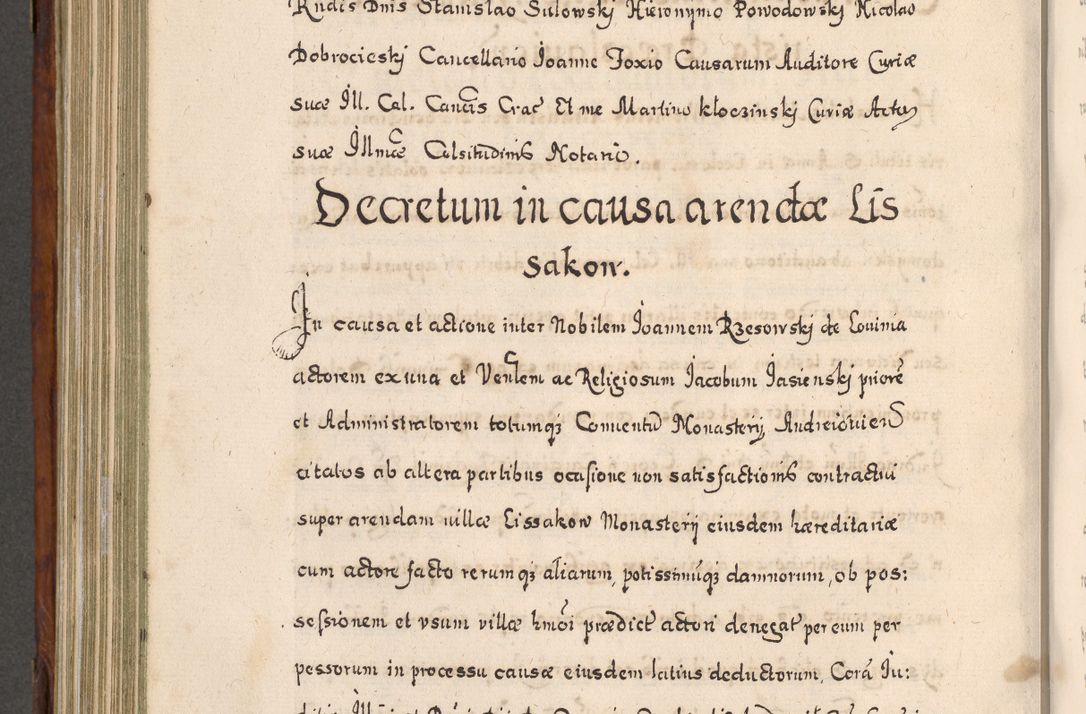 Rudis Dnis Stanislao Sulowskj Hieronymo Powodowskj Nicolao
Dobrocieskj Cancellario Joanne Foxio Causarum Auditore Curiæ
suæ Ill. Cal. Cancis Crac Et me Martino Kłoczinskj Curiæ Actor
suæ Illmæ Celsitudinis Notario.
Decretum in causa arendæ Lis
sakow.
In causa et actione inter Nobilem Joannem Rzesowskj de Louinia
actorem ex una et Venlem ac Religiosum Jacobum Jasienskj priorē
et Administratorem totumqȝ Conuentū Monasterij Andreiouien
citatos ab altera partibus ocasione non satisfactionis contractui
super arendam uillæ Lissakow Monasterij eiusdem hæreditariæ
cum actore facto rerumqȝ aliarum, potissimūqȝ damnorum, ob pos:
sessionem et vsum villæ hmōi prædict actori denegat per eum per
pessorum in processu causæ eiusdem latius deductorum, Corā Ju: